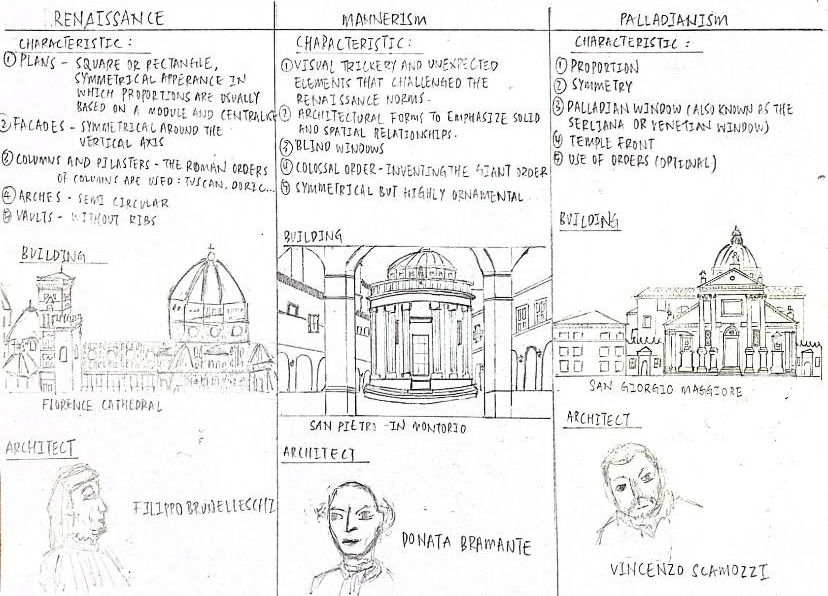 RENAISSANCE
CHARACTERISTIC :
① PLANS - SQUARE OR RECTANGLE,
SYMMETRICAL APPERANCE IN
WHICH PROPORTIONS ARE USUALLY
BASED ON A MODULE AND CENTRALISE
② FACADES - SYMMETRICAL AROUND THE
VERTICAL AXIS
③ COLUMNS AND PILASTERS - THE ROMAN ORDERS
OF COLUMNS ARE USED : TUSCAN, DORIC...
④ ARCHES - SEMI CIRCULAR
⑤ VAULTS - WITHOUT RIBS
BUILDING
FLORENCE CATHEDRAL
ARCHITECT
FILIPPO BRUNELLESCHI
MANNERISM
CHARACTERISTIC :
① VISUAL TRICKERY AND UNEXPECTED
ELEMENTS THAT CHALLENGED THE
RENAISSANCE NORMS.
② ARCHITECTURAL FORMS TO EMPHASIZE SOLID
AND SPATIAL RELATIONSHIPS.
③ BLIND WINDOWS
④ COLOSSAL ORDER - INVENTING THE GIANT ORDER
⑤ SYMMETRICAL BUT HIGHLY ORNAMENTAL
BUILDING
SAN PIETRO - IN MONTORIO
ARCHITECT
DONATA BRAMANTE
PALLADIANISM
CHARACTERISTIC :
① PROPORTION
② SYMMETRY
③ PALLADIAN WINDOW (ALSO KNOWN AS THE
SERLIANA OR VENETIAN WINDOW)
④ TEMPLE FRONT
⑤ USE OF ORDERS (OPTIONAL)
BUILDING
SAN GIORGIO MAGGIORE
ARCHITECT
VINCENZO SCAMOZZI